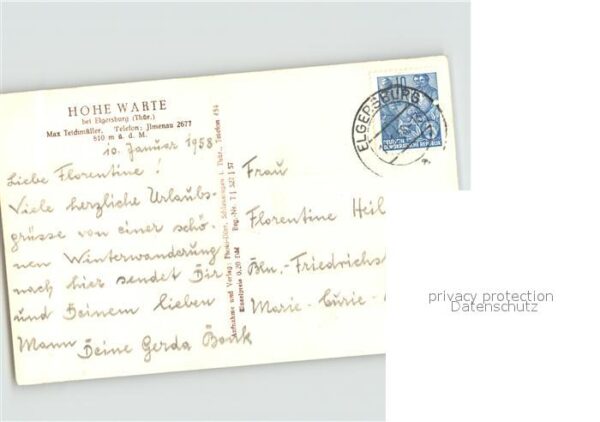 HOHE WARTE
bei Elgersburg (Thür.)
Max Teichmüller, Telefon: Jlmenau 2677
810 m ü. d. M.
10. Januar 1958
Liebe Florentine!
Viele herzliche Urlaubs-
grüsse von einer schö-
nen Winterwanderung
nach hier sendet Dir
und Deinem lieben
Mann Deine Gerda Bonk
Aufnahme und Verlag: Photo-Dörr, Schleusingen i. Thür., Telefon 454
Einzelpreis 0.20 DM Reg.-Nr. T
10
DEUTSCHE
DEMOKRATISCHE REPUBLIK
ELGERSBURG
Frau
Florentine Heil
Bln.-Friedrichs
Marie-Curie-
privacy protection
Datenschutz